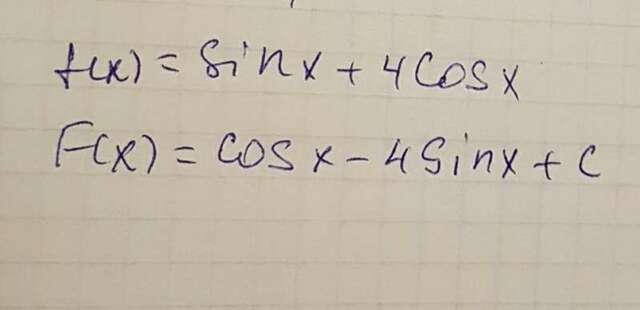 f(x) = Sinx + 4Cosx
F(x) = Cosx - 4Sinx + C